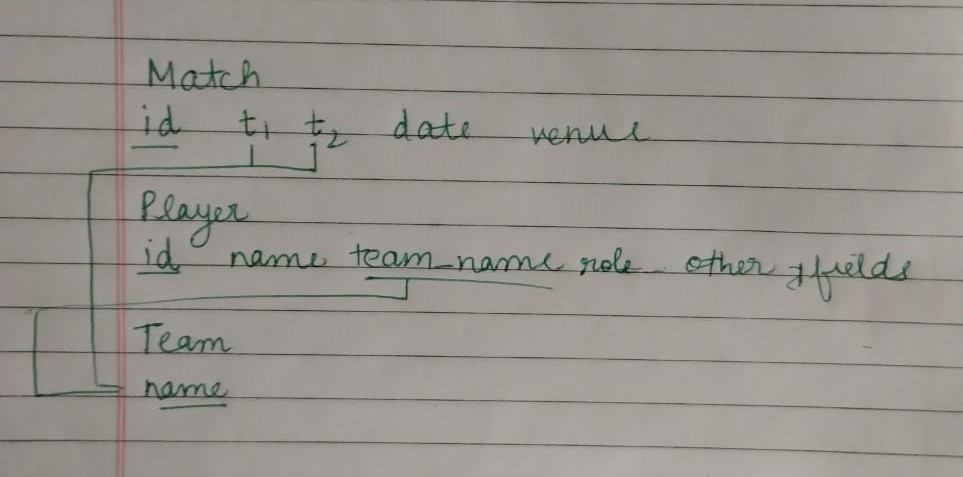 Match
id t₁ t₂ date venue
Player
id name team_name role other fields
Team
name